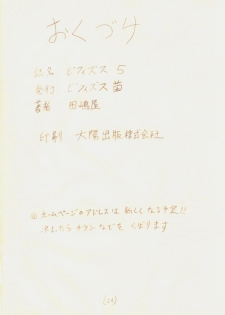 おくづけ
誌名 ビフィズス5
発行 ビフィズス菌
著者 田嶋屋
印刷 大陽出版株式会社
※ホームページのアドレスは新しくなる予定!!
決まったらチラシなどをくばります
(26)